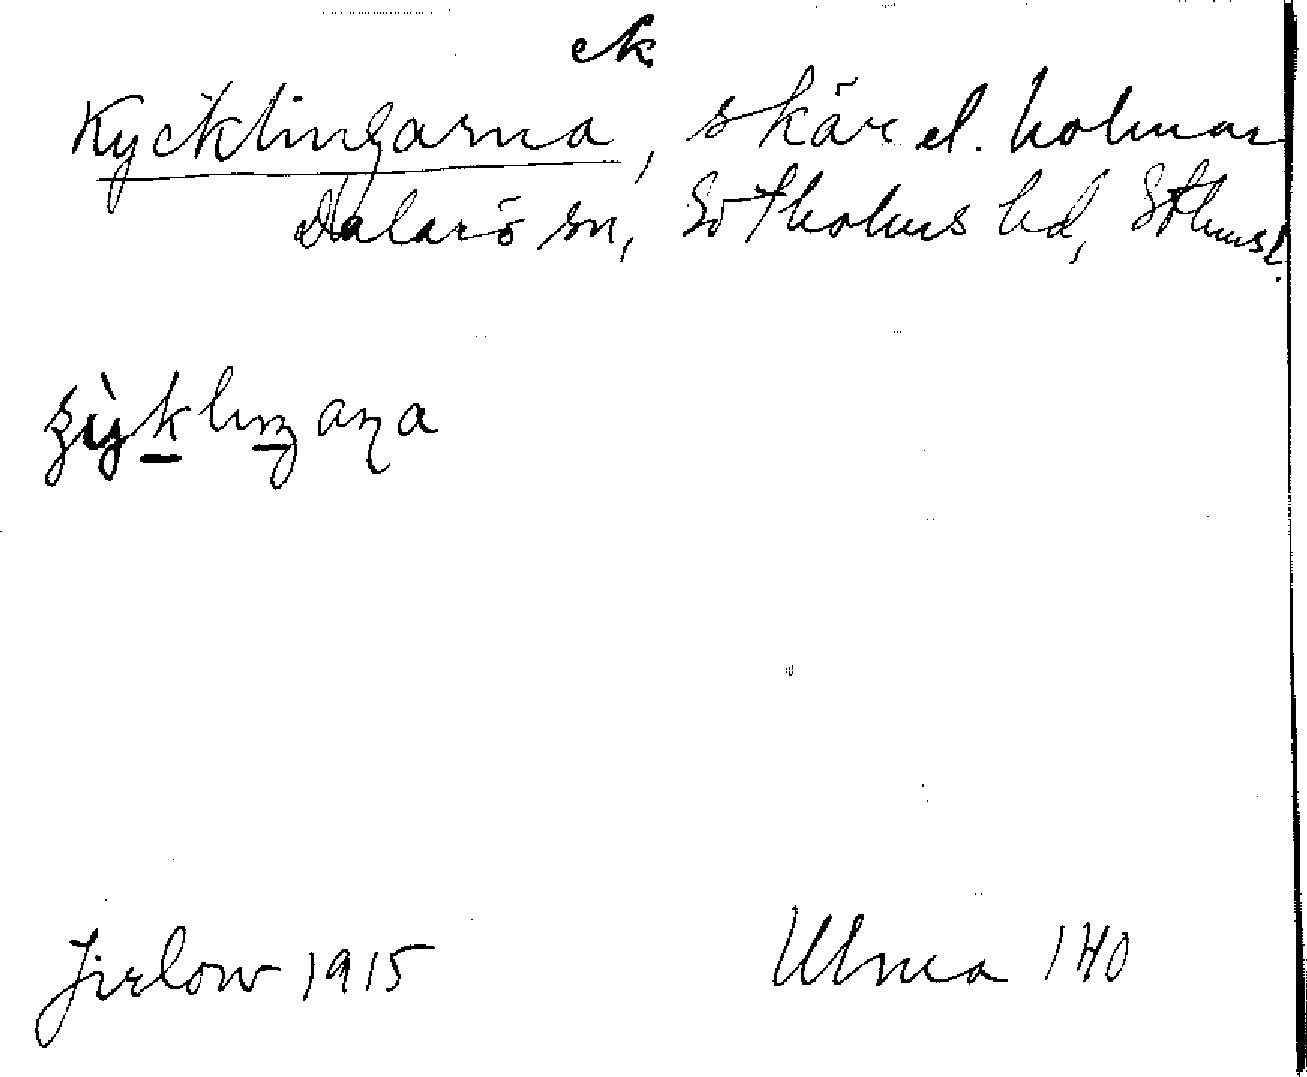 ek
Kycklingarna, skär el. holmar
Dalarö sn, Sotholms hd, Sthmsl.
Jirlow 1915 Ulma 140